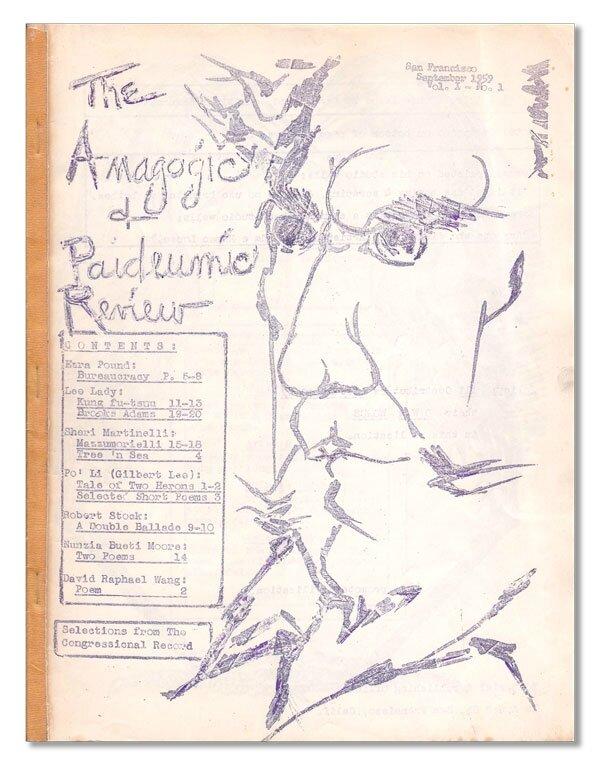 The
Anagogic
&
Paideumic
Review
San Francisco
September 1959
Vol. I - No. 1
CONTENTS:
Ezra Pound:
Bureaucracy P. 5-8
Lee Lady:
Kung fu-tsuu 11-13
Brooks Adams 19-20
Sheri Martinelli:
Mazzumorielli 15-18
Tree 'n Sea 4
Po' Li (Gilbert Lee):
Tale of Two Herons 1-2
Selected Short Poems 3
Robert Stock:
A Double Ballade 9-10
Nunzia Bueti Moore:
Two Poems 14
David Raphael Wang:
Poem 2
Selections from The
Congressional Record